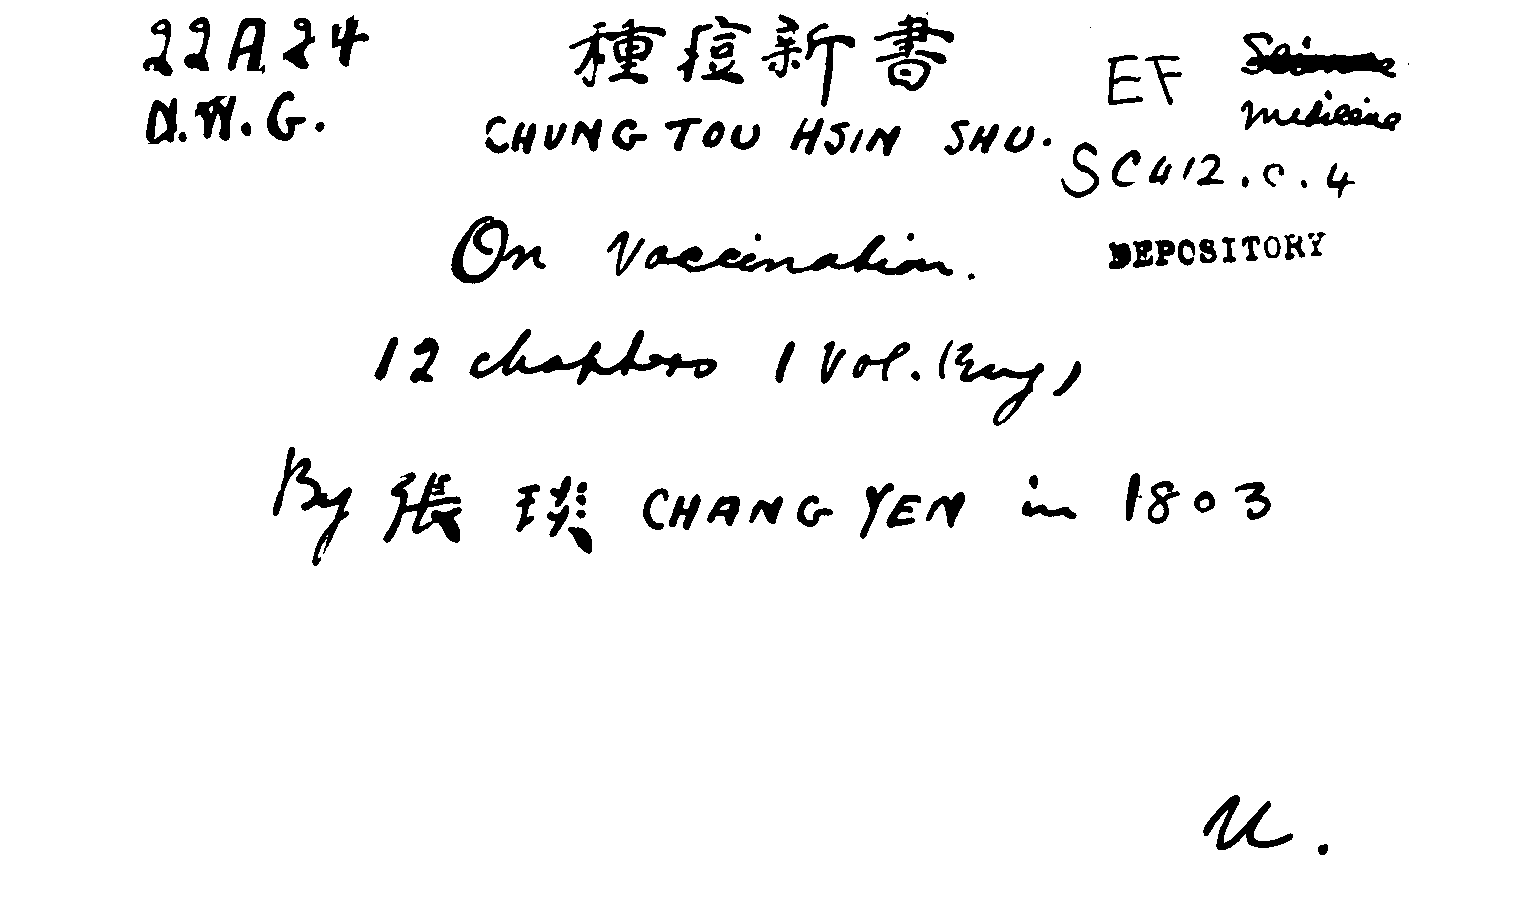 22A24
N.W.G.
種痘新書
CHUNG TOU HSIN SHU.
EF
Science
Medicine
SC412.C.4
DEPOSITORY
On Vaccination.
12 chapters 1 Vol. (Eng)
By 張琰 CHANG YEN in 1803
U.